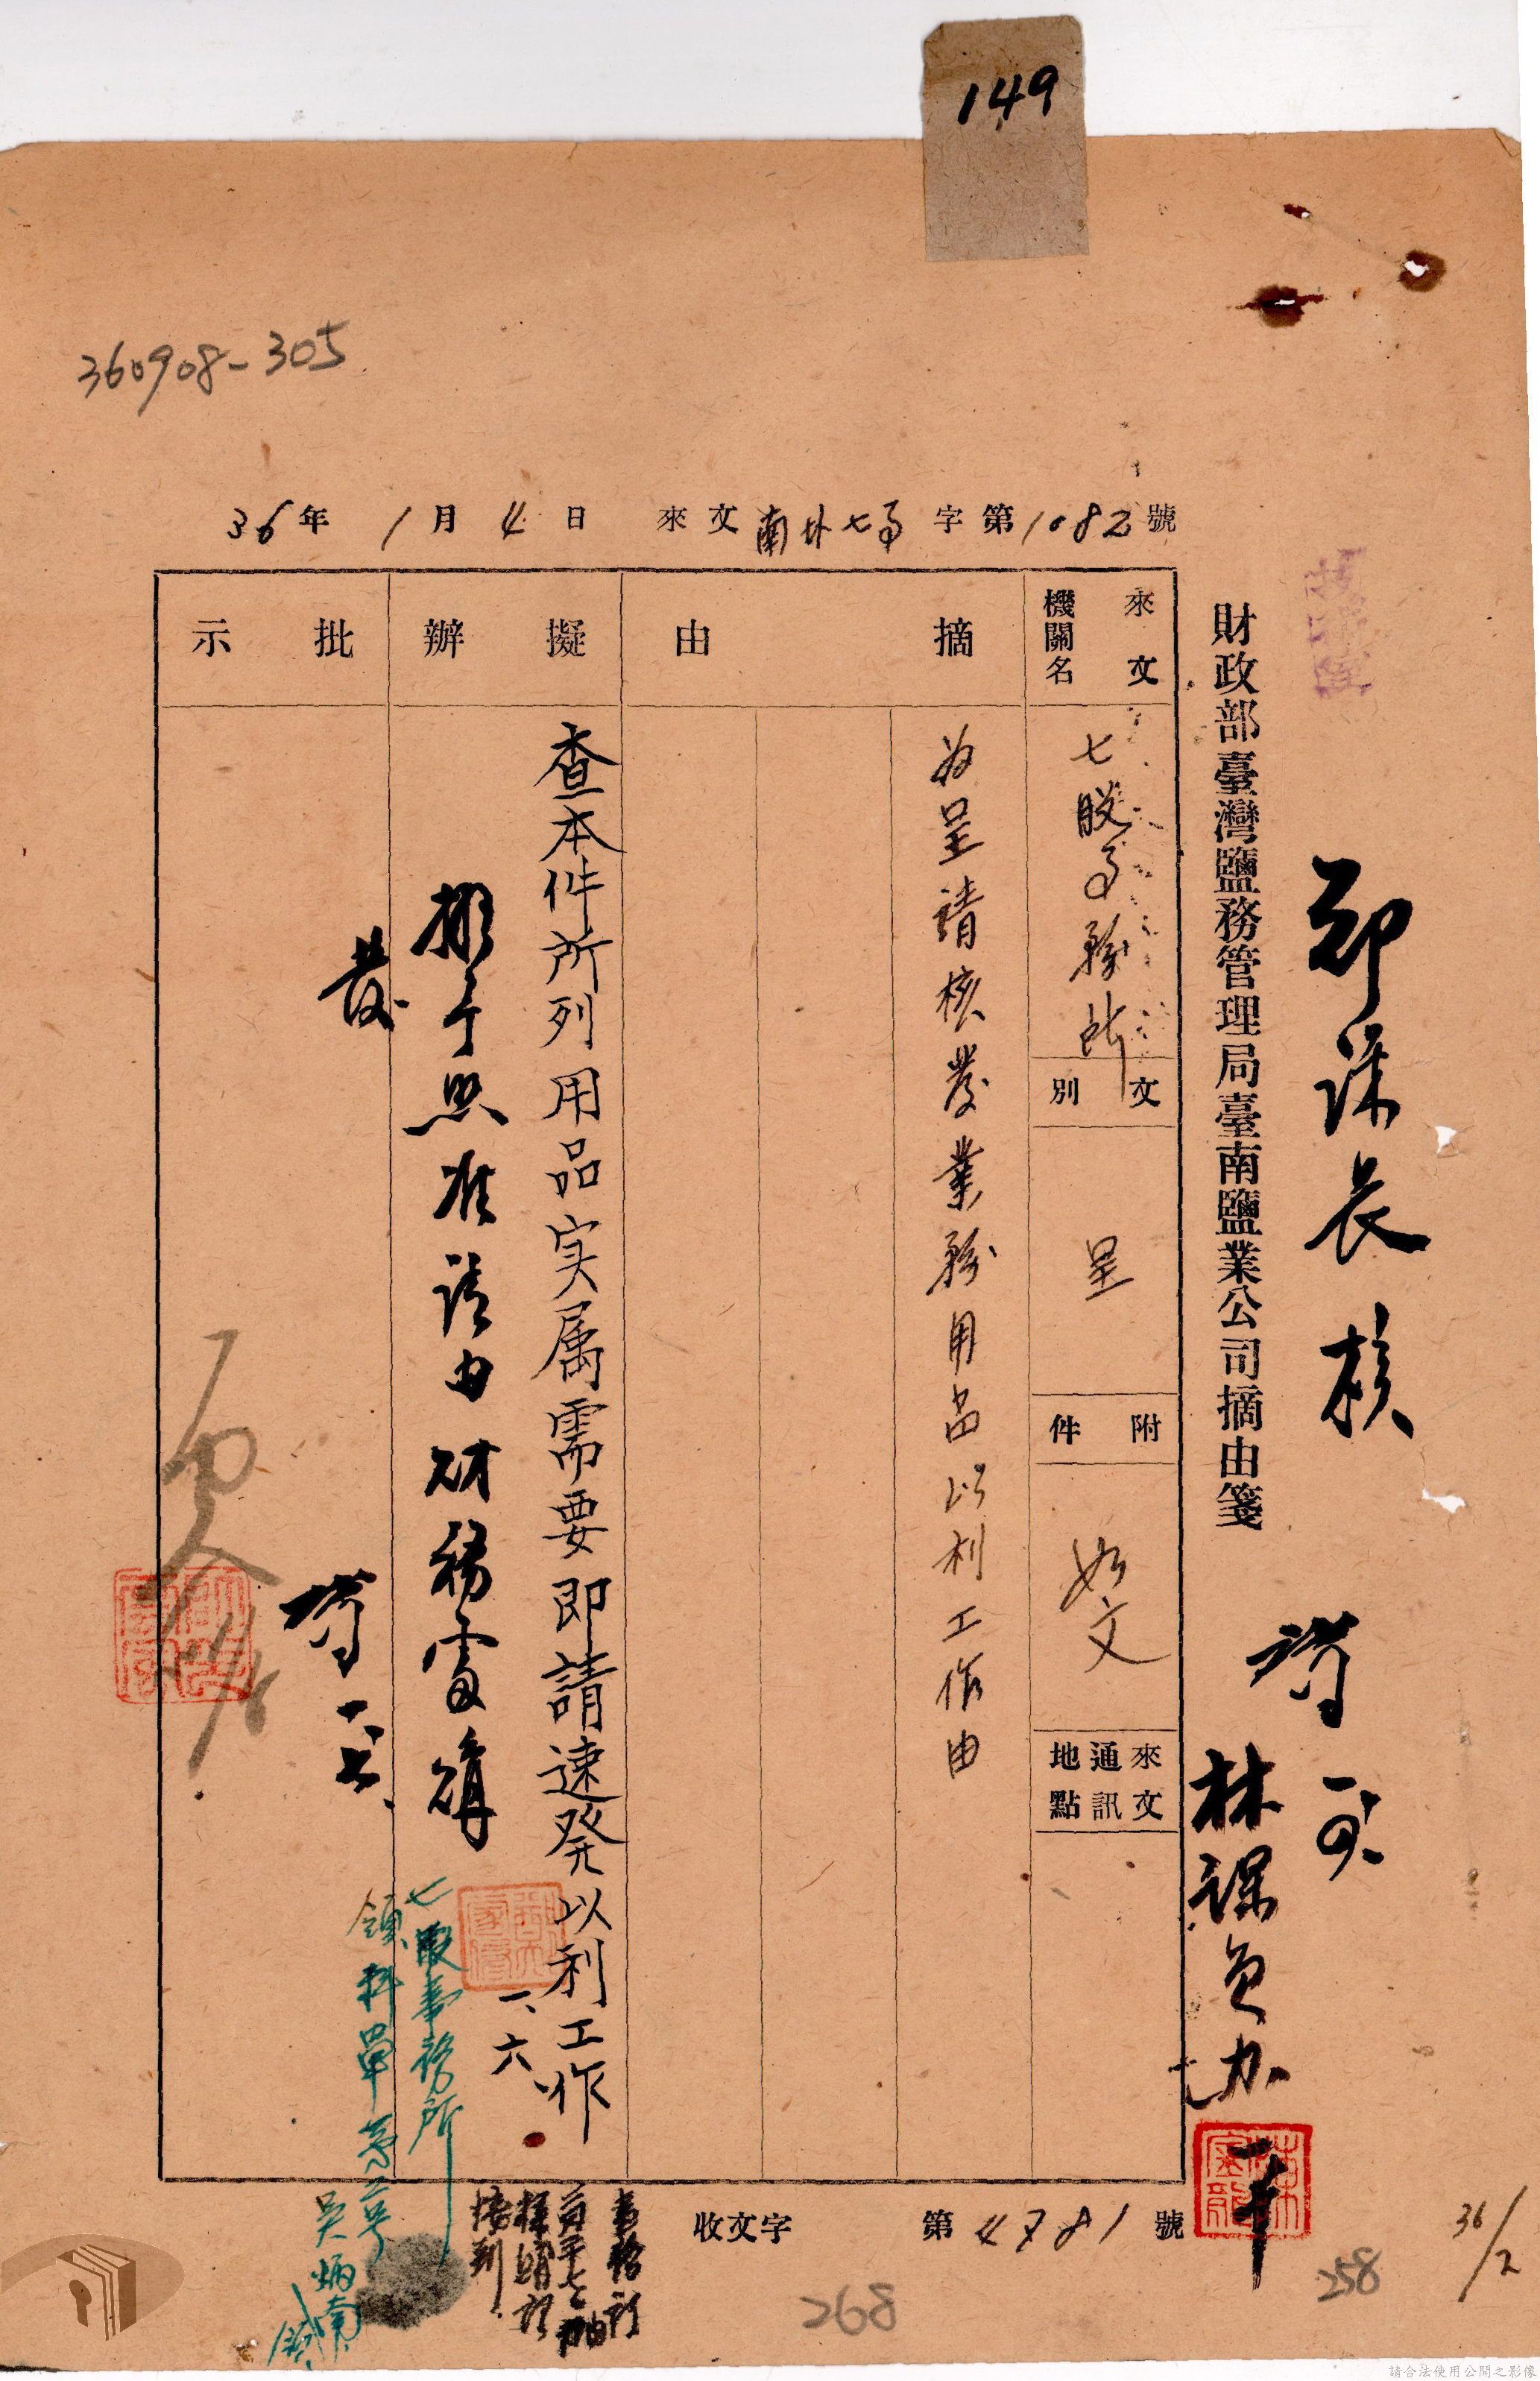 149
360908-305
36年1月4日 來文南外七事字第1082號
財政部臺灣鹽務管理局臺南鹽業公司摘由箋
課長核
林課員办
來文機關名
七股事務所
文別
呈
附件
如文
來文通訊地點
摘由
為呈請核發業務用品以利工作由
擬辦
查本件所列用品实属需要即請速発以利工作
一、六、
擬予照准請由財務處購
發
批示
七股事務所
領料單第二号
吳炳南領
收文字第4781號
268
258
36/2
請合法使用公開之影像